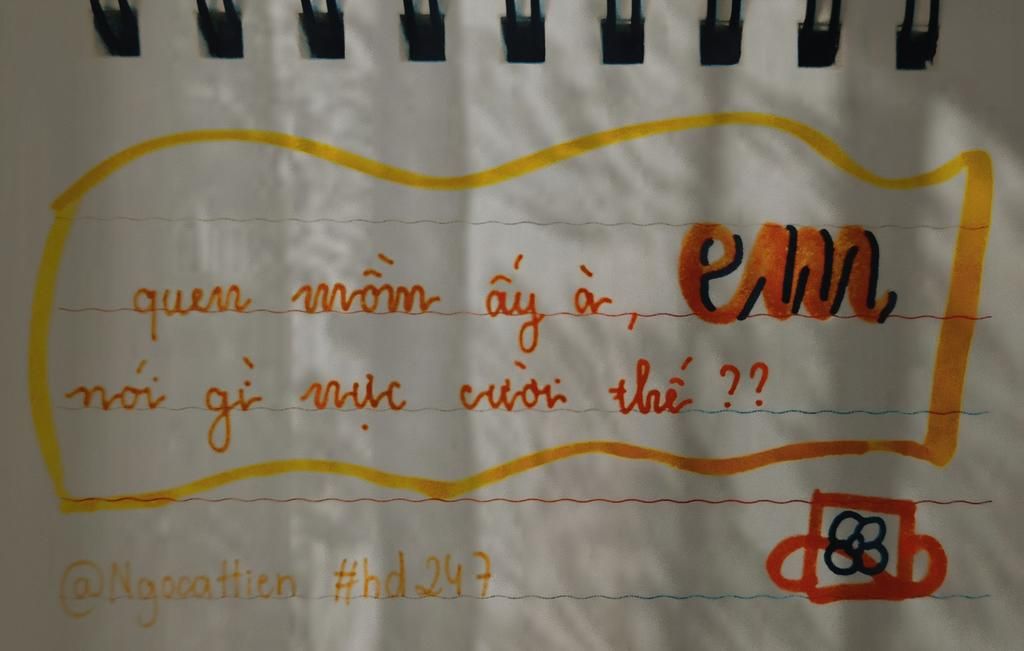 quen mồm ấy à, em,
nói gì nực cười thế ??
@Ngocattien #hd247